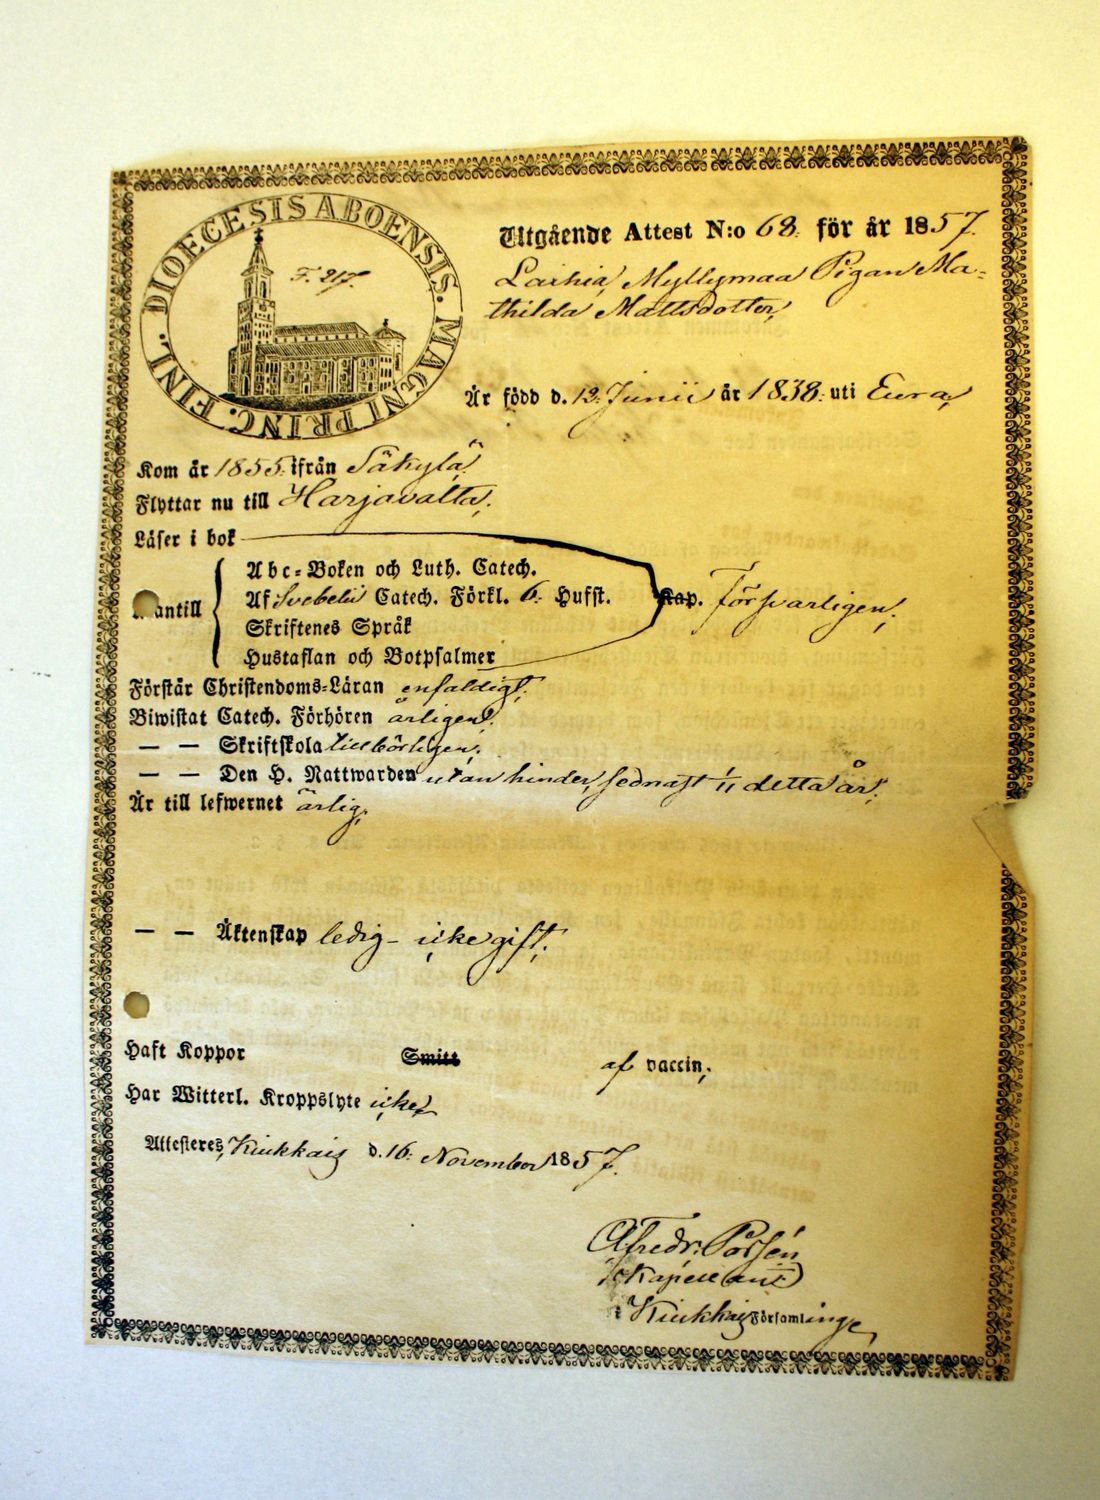 DIOECESIS ABOENSIS. MAGNI PRINC. FINL.
F. 217.
Utgående Attest N:o 68. för år 1857.
Laihia, Myllymaa Pigan Ma-
thilda Mattsdotter,
Är född d. 12. Junii år 1838: uti Eura,
Kom år 1855. ifrån Säkylä
Flyttar nu till Harjavalta,
Läser i bok
antill
Abc-Boken och Luth. Catech.
Af Svebelii Catech. Förkl. 6. Hufst. Kap. Försvarligen,
Skriftenes Språk
Hustaflan och Botpsalmer
Förstår Christendoms-Läran enfaldigt,
Biwistat Catech. Förhören ärligen,
— — Skriftskola tillbörligen,
— — Den H. Nattwarden utan hinder, sednast 1/11 detta år,
Är till lefwernet ärlig,
— — Äktenskap ledig - icke gift,
Haft Koppor Smitt af vaccin,
Har Witterl. Kroppslyte icke,
Attesteres, Kiukkais d. 16. November 1857.
Alfredr. Porsén
Kapellant
i Kiukkais Församlinge,